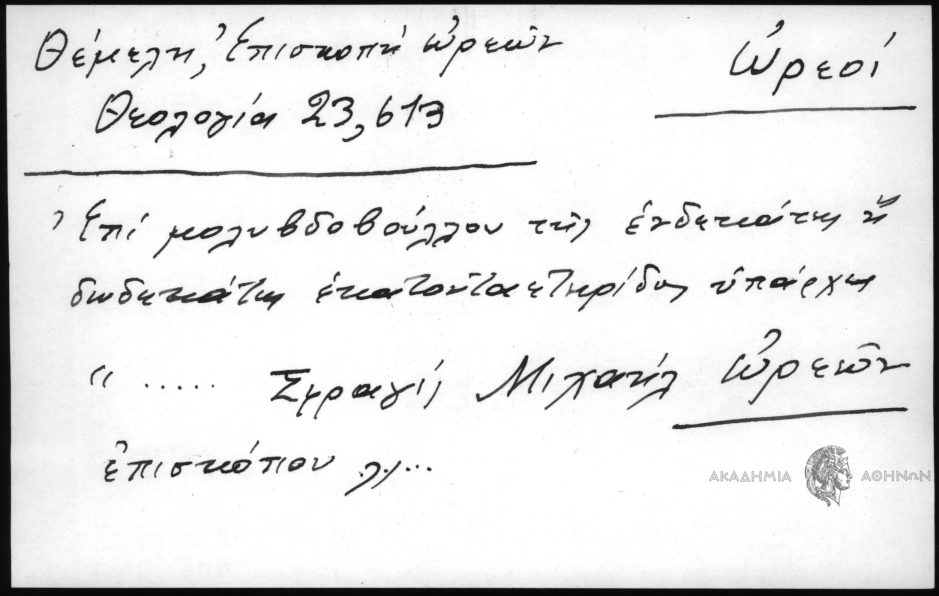 Θέμελη, Ἐπισκοπή Ὠρεῶν
Ὠρεοί
Θεολογία 23, 613
Ἐπί μολυβδοβούλλου τῆς ἑνδεκάτης ἤ
δωδεκάτης ἑκατονταετηρίδος ὑπάρχει
“ ..... Σφραγίς Μιχαήλ Ὠρεῶν
ἐπισκόπου ”...
ΑΚΑΔΗΜΙΑ ΑΘΗΝΩΝ